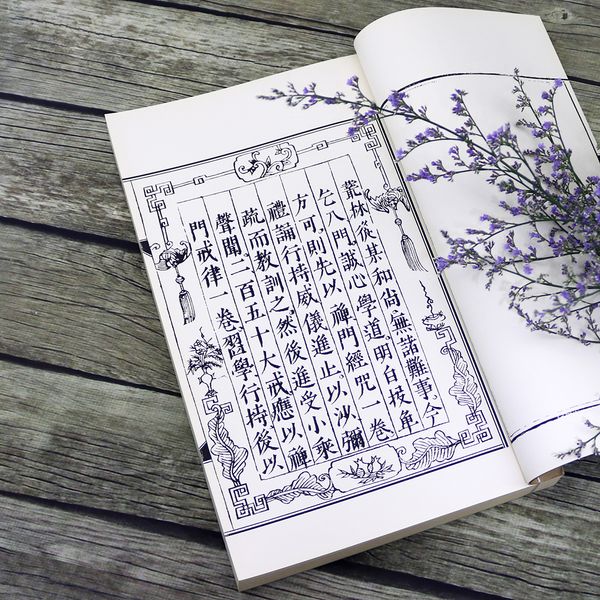 叢林、從某和尚、無諸難事、今
乞入門、誠心學道、明白投單
方可、則先以禪門經咒一卷、
禮誦行持威儀進止、以沙彌
疏而教訓之、然後進受小乘
聲聞、二百五十大戒、應以禪
門戒律一卷、習學行持、後以